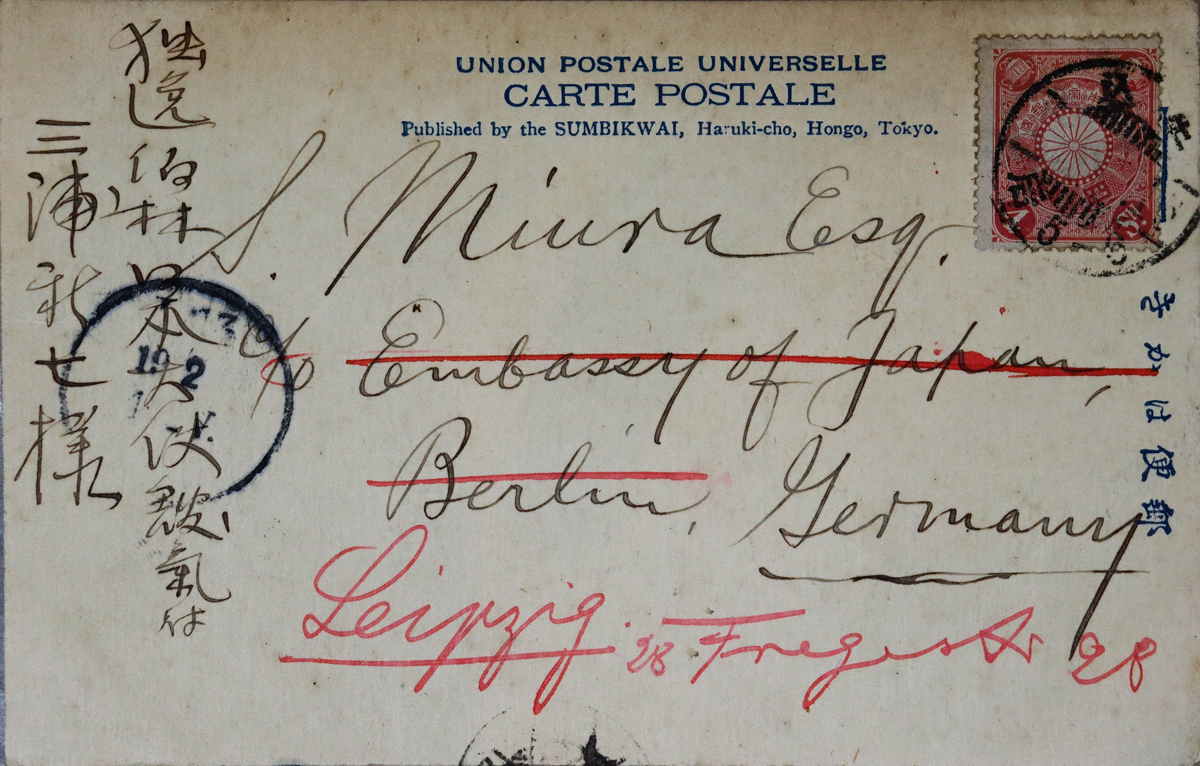 UNION POSTALE UNIVERSELLE
CARTE POSTALE
Published by the SUMBIKWAI, Haruki-cho, Hongo, Tokyo.
きかは便郵
独逸伯林日本大使館氣付
三浦新七様
S. Miura Esq.
c/o Embassy of Japan,
Berlin, Germany
Leipzig. 28 Fregestr 28
19 2